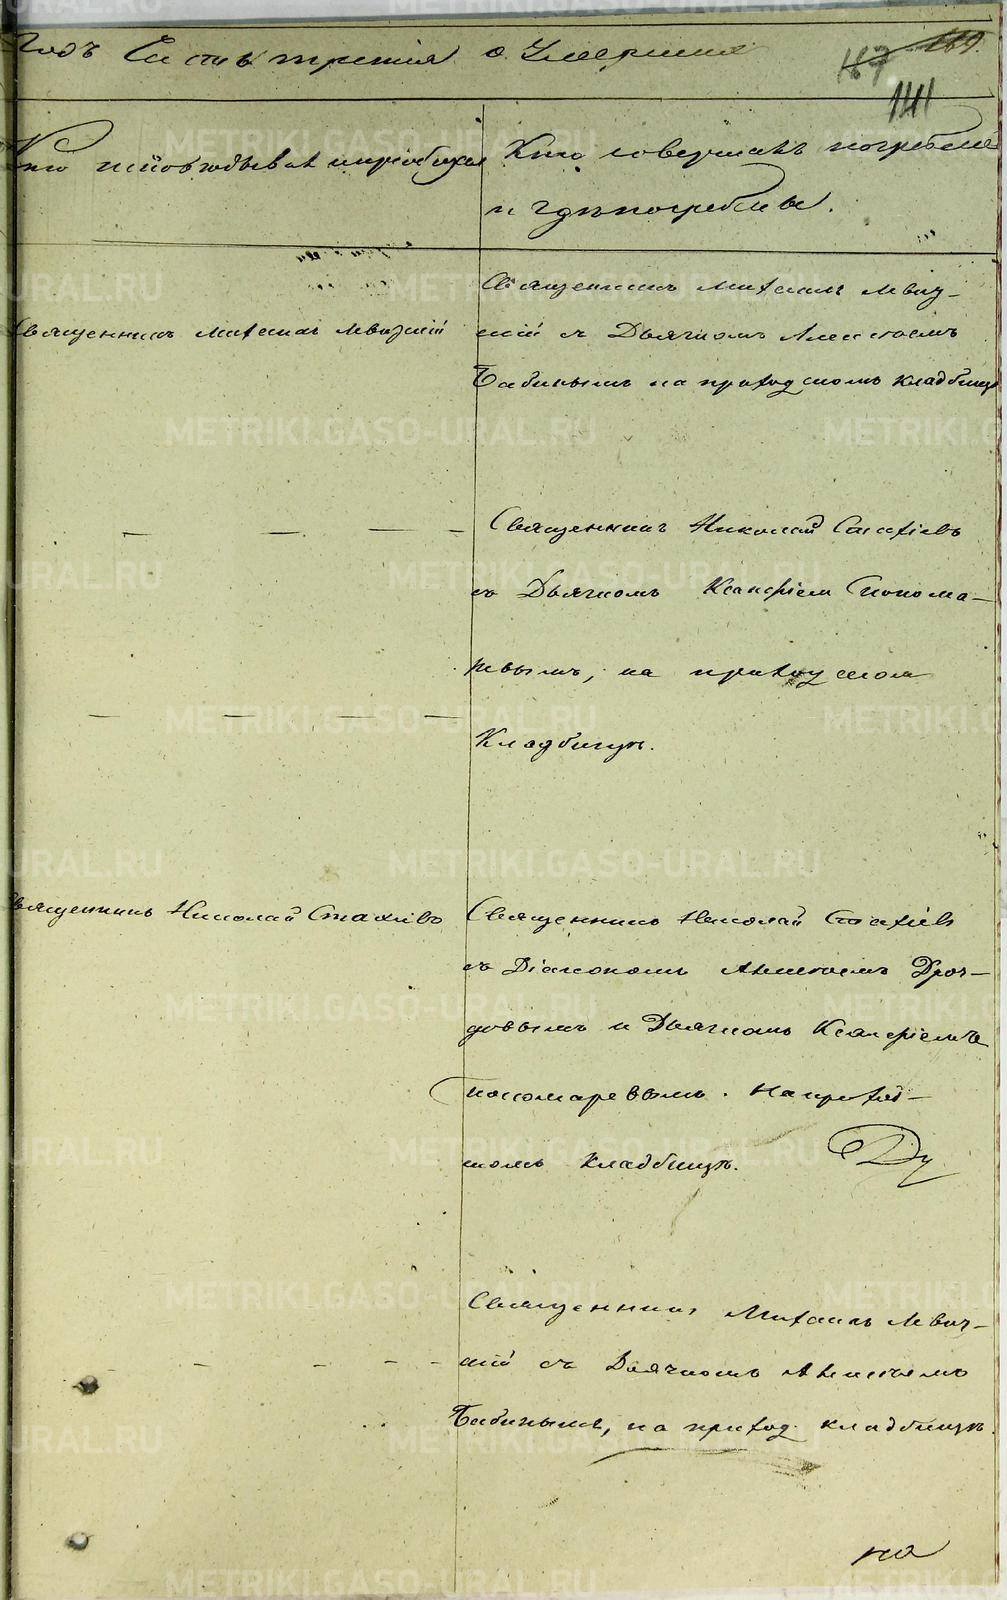 Годъ Часть третія о Умершихъ
167 169.
141
Кто исповѣдывалъ и пріобщалъ
Кто совершалъ погребеніе
и гдѣ погребены.
Священникъ Михаилъ Левиц-
Священникъ Михаилъ Левицкій
кій съ Дьячкомъ Алексѣемъ
Бабинымъ на приходскомъ кладбищѣ
Священникъ Николай Стахіевъ
съ Дьячкомъ Ксанфіем Понома-
ревымъ, на приходском
Кладбищѣ.
Священникъ Николай Стахіевъ
Священникъ Николай Стахіевъ
съ Діакономъ Алексѣемъ Дроз-
довымъ и Дьячкомъ Ксанфіемъ
Пономаревымъ. На приход-
комъ кладбищѣ.
Священникъ Михаилъ Левиц-
кій съ Дьячкомъ Алексѣемъ
Бабинымъ, на приход. кладбищѣ.
на
METRIKI.GASO-URAL.RU